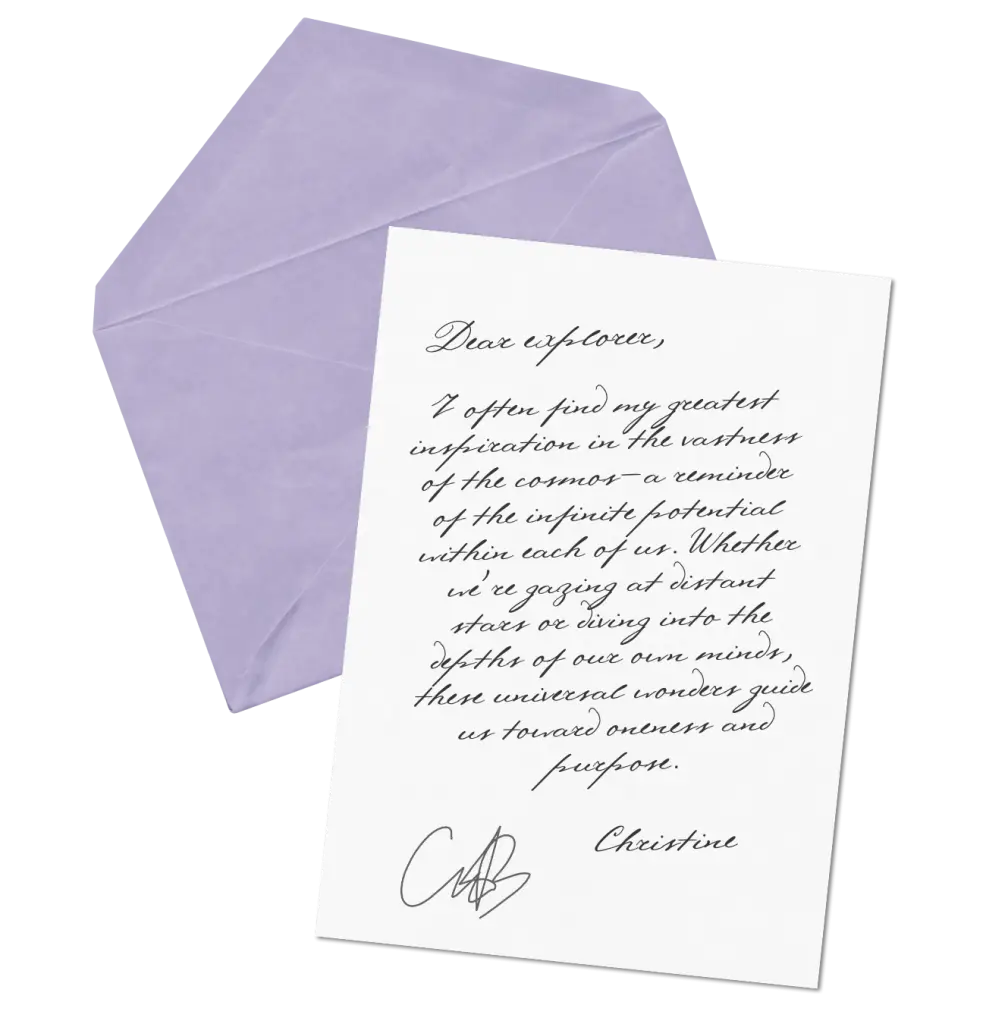 Dear explorer,
I often find my greatest
inspiration in the vastness
of the cosmos—a reminder
of the infinite potential
within each of us. Whether
we're gazing at distant
stars or diving into the
depths of our own minds,
these universal wonders guide
us toward oneness and
purpose.
Christine